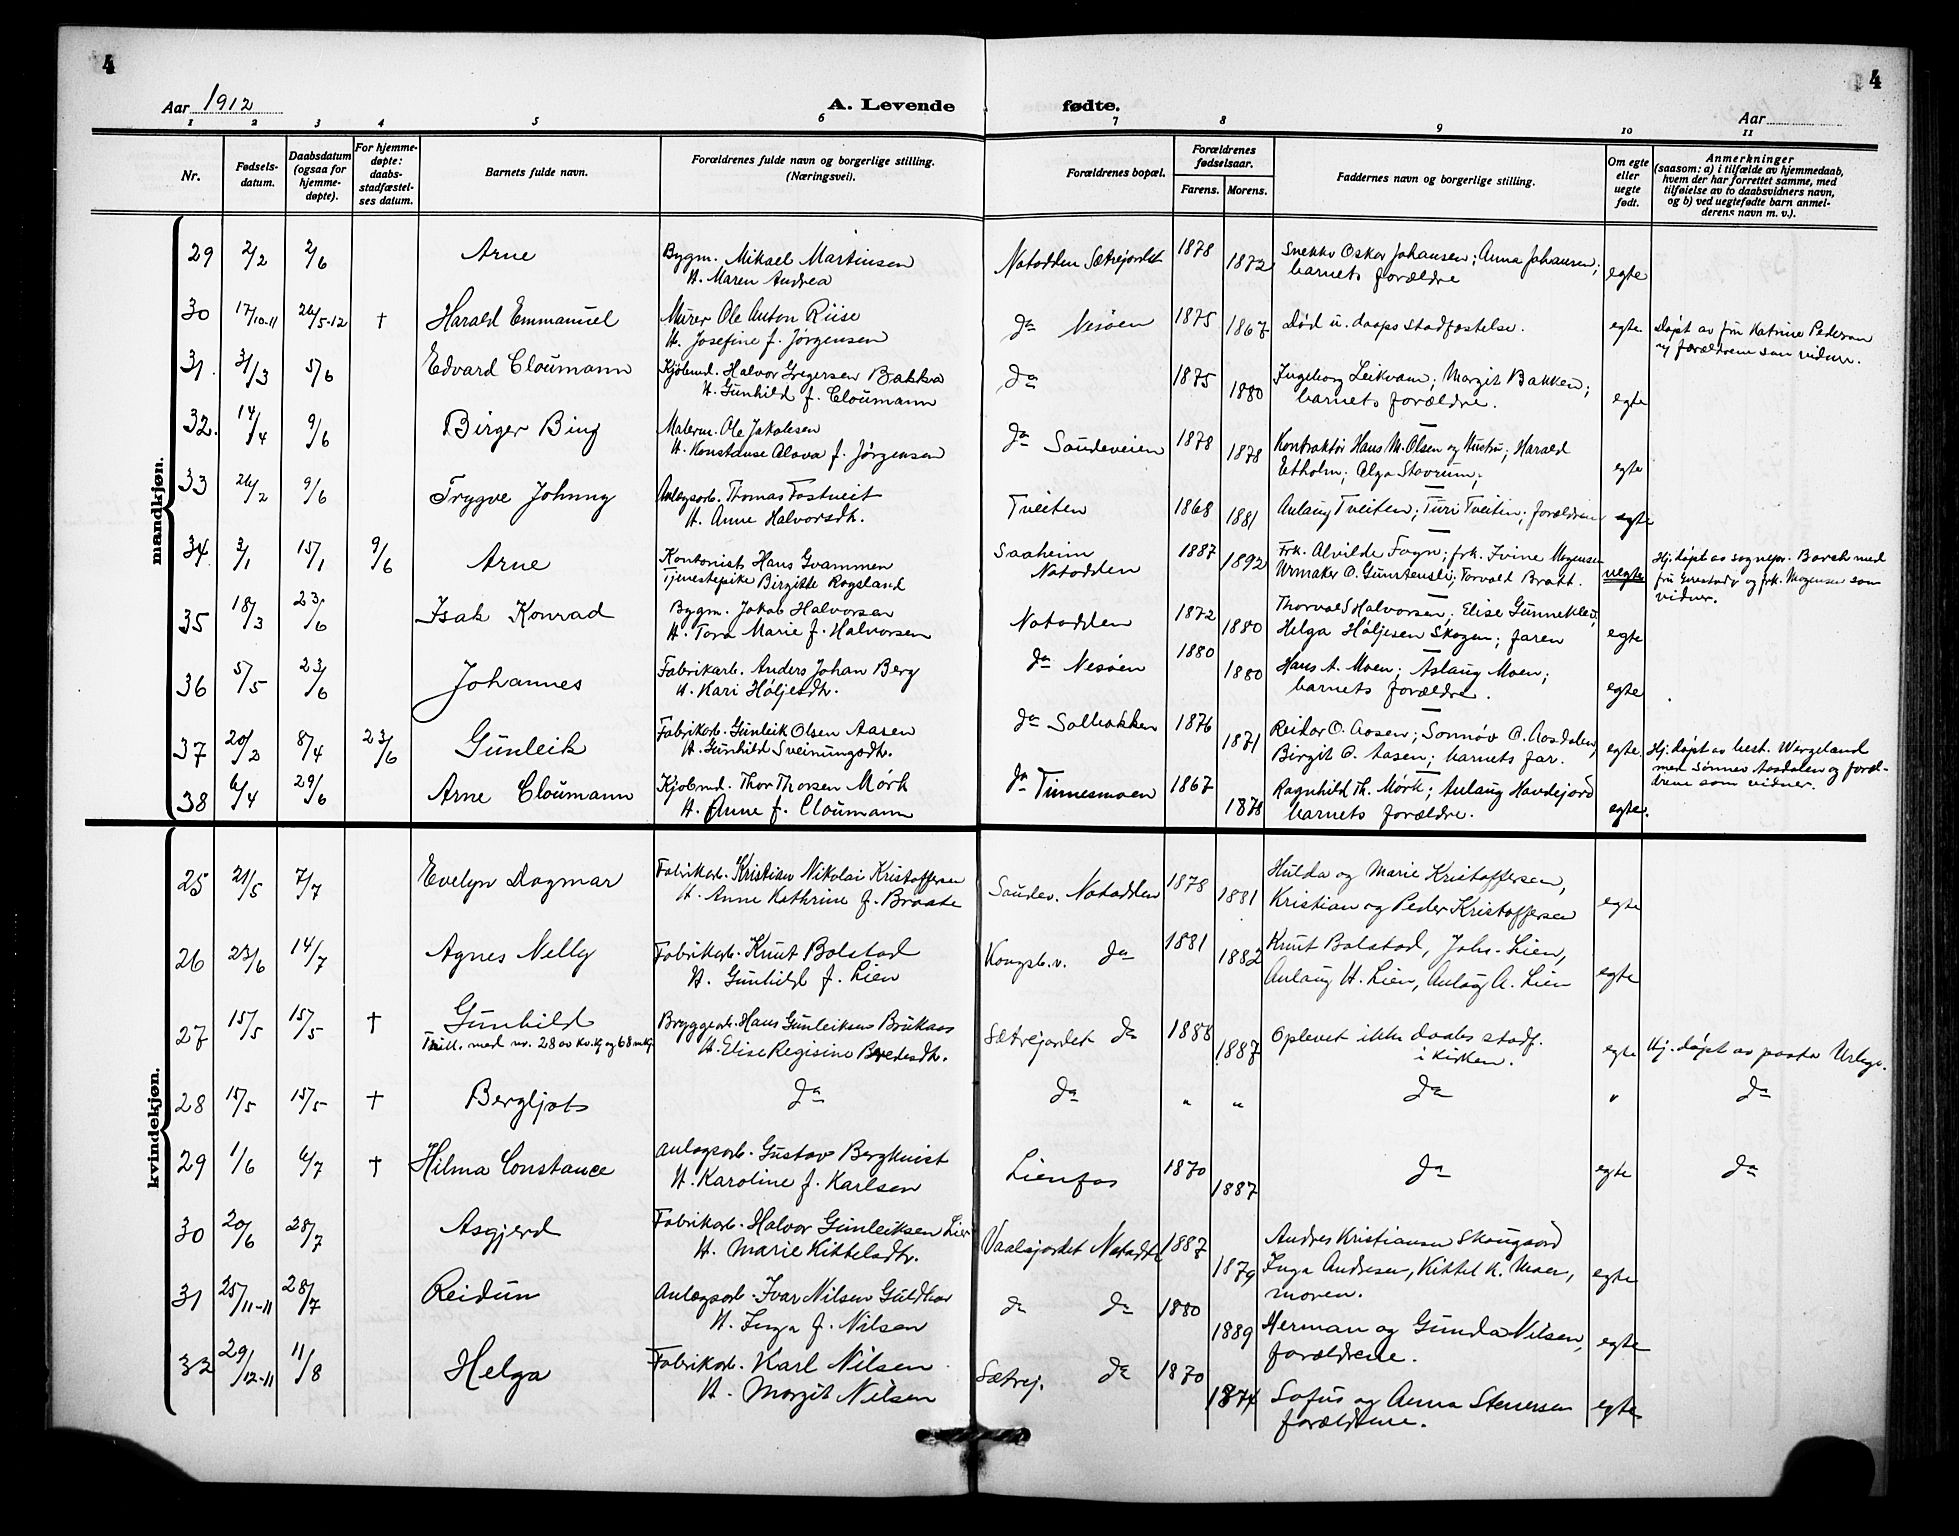 4
4
Aar 1912
A. Levende fødte.
Aar
1 2 3 4 5 6 7 8 9 10 11
Nr.
Fødsels-
datum.
Daabsdatum
(ogsaa for
hjemme-
døpte).
For hjemme-
døpte:
daabs-
stadfæstel-
ses datum.
Barnets fulde navn.
Forældrenes fulde navn og borgerlige stilling.
(Næringsvei).
Forældrenes bopæl.
Forældrenes
fødselsaar.
Farens. Morens.
Faddernes navn og borgerlige stilling.
Om egte
eller
uegte
født.
Anmerkninger
(saasom: a) i tilfælde av hjemmedaab,
hvem der har forrettet samme, med
tilføielse av to daabsvidners navn,
og b) ved uegtefødte barn anmel-
derens navn m. v.).
mandkjøn.
29 2/2 2/6 Arne Bygm. Mikael Martinsen Notodden Sætrejordet 1878 1872 Snekker Oskar Johansen; Anna Johansen; egte
H. Maren Andrea barnets forældre
30 17/10-11 26/5-12 † Harald Emmanuel Murer Ole Anton Riise do Nesøen 1875 1867 Død u. daaps stadfæstelse. egte Døpt av fru Katrine Pedersen
H. Josefine f. Jørgensen og forældrene som vidner.
31. 31/3 5/6 Edvard Cloumann Kjøbmd. Halvor Gregersen Bakka do 1875 1880 Ingeborg Leikvam; Margit Bakken; egte
H. Gunhild f. Cloumann barnets forældre.
32. 14/4 9/6 Birger Bing Materm. Ole Jakobsen do Saudeveien 1878 1878 Kontraktør Hans M. Olsen og Hustru; Harald egte
H. Konstanse Alova f. Jørgensen Etholm; Olga Stavrum;
33 26/2 9/6 Trygve Johnny Anlægsarb. Thomas Fostveit Tveiten 1868 1881 Aulaug Tveiten; Turi Tveiten; forældrene egte
H. Anne Halvorsdtr.
34 3/1 15/1 9/6 Arne Kontorist Hans Gvammen Saaheim 1887 1892 Frk. Alvilde Fogn; frk. Irine Mogensen uegte Hj. døpt av sognepr. Barth med
Tjenestepike Birgitte Rogsland Notodden Urmaker O. Gunstensli; Torvald Bratt. fru og frk. Mogensen som
vidner.
35 18/3 23/6 Isak Konrad Bygm. Jakob Halvorsen Notodden 1872 1880 Thorvald Halvorsen; Elise Gunnekleiv; egte
H. Tora Marie f. Halvorsen Helga Høljesen Skogen; faren
36 5/5 23/6 Johannes Fabrikarb. Anders Johan Berg do Nesøen 1880 1880 Hans A. Moen; Aslaug Moen; egte
H. Kari Høljesdtr. barnets forældre.
37 20/2 8/4 23/6 Gunleik Fabrikarb. Gunleik Olsen Aasen do Solbakken 1876 1871 Reidar O. Aasen; Sonnøv O. Aasdalen, egte. Hj. døpt av best. Wergeland
H. Gunhild Sveinungsdtr. Birgit O. Aasen; barnets far. med Sønnev Aasdalen og foræl-
drene som vidner.
38 6/4 29/6 Arne Cloumann Kjøbmd. Thor Thorsen Mørk do Tinnesmoen 1867 1878 Ragnhild Th. Mørk; Aulaug Haudejord egte.
H. Anne f. Cloumann barnets forældre.
kvindekjøn.
25 21/5 7/7 Evelyn Dagmar Fabrikarb. Kristian Nikolai Kristoffersen Saudev. Notodden 1878 1881 Hulda og Marie Kristoffersen, egte
H. Anne Kathrine f. Braate Kristian og Peder Kristoffersen
26 23/6 14/7 Agnes Nelly Fabrikarb. Knut Bolstad Kongsb.v. do 1881 1882 Knut Bolstad, Johs. Lien, egte
H. Gunhild f. Lien Aulaug H. Lien, Aulaug A. Lien
27 15/5 15/5 † Gunhild Bryggearb. Hans Gunleiksen Brukaas Sætrejordet do 1888 1887 Oplevet ikke daabs stadf. egte Hj. døpt av pastor
Trill. med nr. 28 av kv.kj og 68 m.kj H. Elise Regisine Bredesdtr. i kirken.
28 15/5 15/5 † Bergljot do do " " do " do
29 1/6 6/7 † Hilma Constance Anlægsarb. Gustav Bergkvist Lienfos 1870 1887 do egte do
H. Karoline f. Karlsen
30 20/6 28/7 Asgjerd Fabrikarb. Halvor Gunleiksen Lien Vaalsjordet Notodden 1887 1879 Andres Kristiansen Skougaard egte
H. Marie Kittelsdtr. Inga Andresen, Kittel K. Moen,
moren.
31 25/11-11 28/7 Reidun Anlægsarb. Ivar Nilsen Guldhav do do 1880 1889 Herman og Gunda Nilsen, egte
H. Inga f. Nilsen forældrene.
32 29/12-11 11/8 Helga Fabrikarb. Karl Nilsen Sætrej. do 1870 1874 Sofus og Anna Stenersen egte
H. Margit Nilsen forældrene.